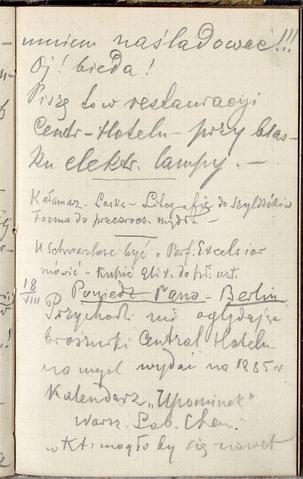 umiem naśladować!!!
Oj! bieda!
Piszę to w restauracyi
Centr-Hotelu – przy blas-
ku elektr. lampy. –
Kałamarz - Laska - do szyldzików
Forma do przezrocz. mydła –
U Schwarlose być o Parf. Excelsior
mówić - Kupić do pł. ust.
18/VIII Poniedz - Rano - Berlin
Przychodzi mi oglądając
broszurki Central Hotelu
na myśl wydać na 1885 r
Kalendarz „Upominek"
Warsz. Lab. Chem.
mogłoby się nawet